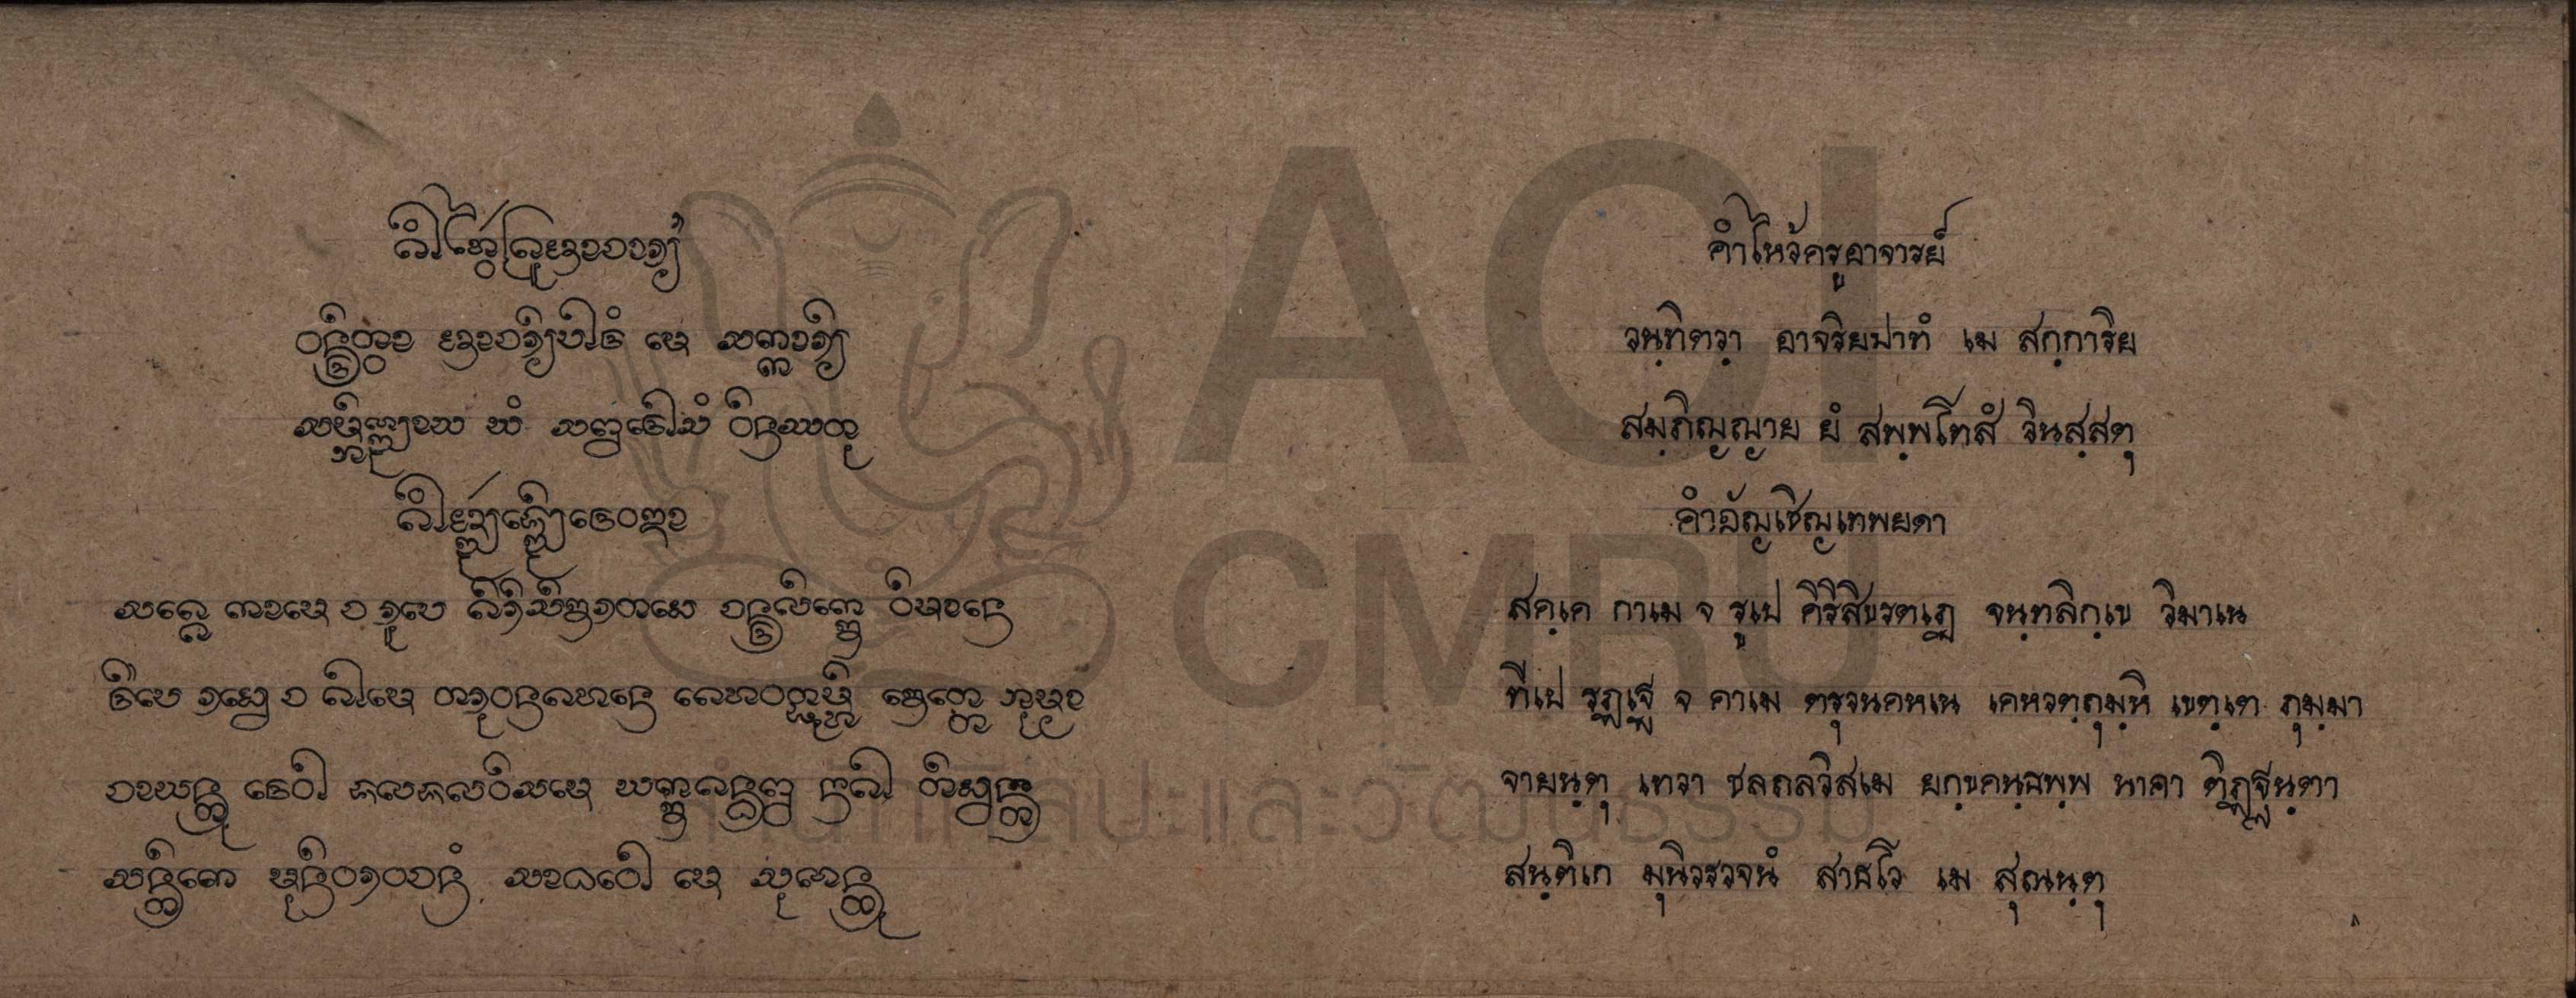 ᨣᩤᩴᩉᩲ᩠ᩅ᩶ᨣᩕᩪᩋᩣᨧᩣᩁ᩠ᨿ᩼
ᩅᨶ᩠ᨴᩥᨲ᩠ᩅᩣ ᩋᩣᨧᩁ᩠ᨿᩥᨷᩤᨴᩴ ᨾᩮ ᩈᨠ᩠ᨠᩣᩁ᩠ᨿᩥ
ᩈᨾ᩠ᨽᩥᨬ᩠ᨬᩣᨿ ᨿᩴ ᩈᨻ᩠ᨻᨴᩮᩤᩈᩴ ᩅᩥᨶᩔᨲᩩ
ᨣᩤᩴᩋᩢᨬ᩠ᨬ᩵ᨩᩮᩥᨬ᩠ᨬᨴᩮᩅᨯᩣ
ᩈᨣ᩠ᨣᩮ ᨠᩣᨾᩮ ᨧ ᩁᩪᨷᩮ ᨣᩥᩁᩥᩈᩥᨡᩁᨲᨭᩮ ᨧᨶ᩠ᨴᩃᩥᨠ᩠ᨡᩮ ᩅᩥᨾᩣᨶᩮ
ᨴᩦᨷᩮ ᩁᨭᩛᩮ ᨧ ᨣᩤᨾᩮ ᨲᩁᩩᩅᨶᨣᩉᨶᩮ ᨣᩮᩉᩅᨲ᩠ᨳᩩᨾ᩠ᩉᩥ ᨡᩮᨲ᩠ᨲᩮ ᨽᩩᨾ᩠ᨾᩣ
ᨧᩣᨿᨶ᩠ᨲᩩ ᨴᩮᩅᩤ ᨩᩃᨳᩃᩅᩥᩈᨾᩮ ᨿᨠ᩠ᨡᨣᨶ᩠ᨵᨻ᩠ᨻ ᨶᨣᩤ ᨲᩥᨭᩛᨶ᩠ᨲᩣ
ᩈᨶ᩠ᨲᩥᨠᩮ ᨾᩩᨶᩥᩅᩁᩅᨧᨶᩴ ᩈᩣᨵᩅᩮᩤ ᨾᩮ ᩈᩩᨱᨶ᩠ᨲᩩ
คำไหว้ครูอาจารย์
วนฺทิตวฺา อาจริยปาทํ เม สกฺการิย
สมฺภิญฺญาย ยํ สพฺพโทสํ วินสฺสตุ
คำอัญเชิญเทพยดา
สคฺเค กาเม จ รูเป คิริสิขรตเฏ จนฺทลิกฺเข วิมาเน
ทีเป รฏฺเฐ จ คาเม ตรุวนคหเน เคหวตฺถุมฺหิ เขตฺเต ภุมฺมา
จายนฺตุ เทวา ชลถลวิสเม ยกฺขคนฺธพฺพ นาคา ติฏฺฐนฺตา
สนฺติเก มุนิวรวจนํ สาธโว เม สุณนฺตุ
ACI
CMRU
สำนักศิลปะและวัฒนธรรม